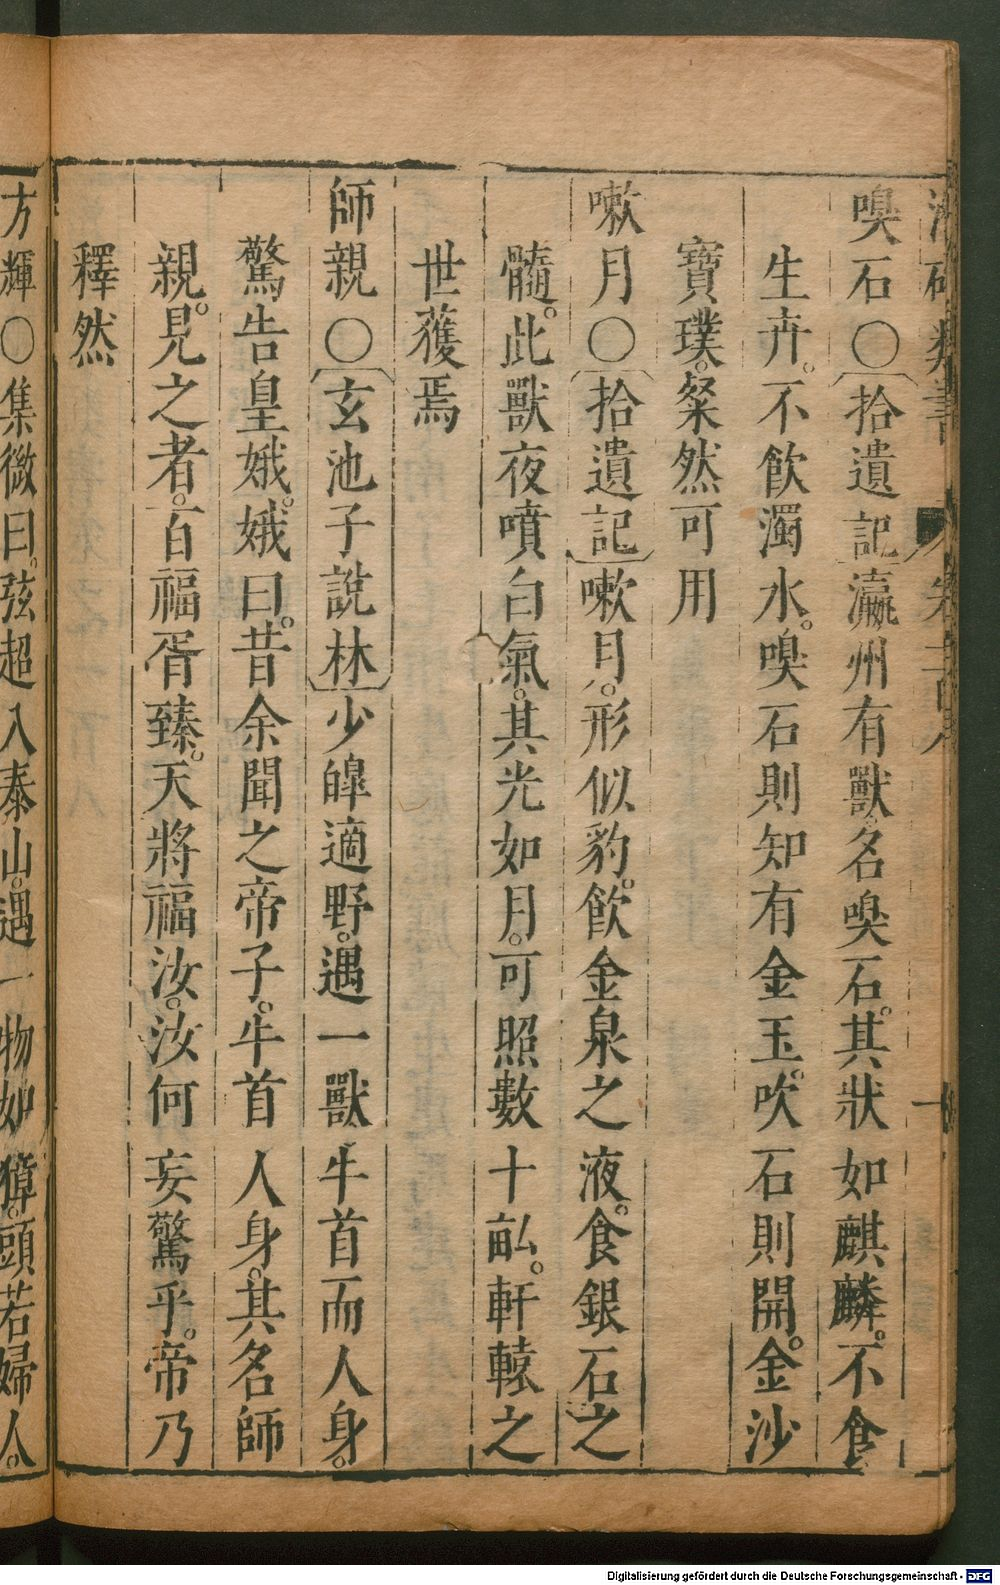 類書 卷
嗅石〇〔拾遺記〕瀛州有獸名嗅石。其狀如麒麟。不食
生卉。不飲濁水。嗅石則知有金玉。吹石則開。金沙
寶璞。粲然可用
嗽月〇〔拾遺記〕嗽月。形似豹。飲金泉之液。食銀石之
髓。此獸夜噴白氣。其光如月。可照數十畝。軒轅之
世獲焉
師親〇〔玄池子說林〕少皡適野。遇一獸牛首而人身。
驚告皇娥。娥曰。昔余聞之帝子。牛首人身。其名師
親。見之者。百福胥臻。天將福汝。汝何妄驚乎。帝乃
釋然
方輝〇集微曰。弦超入泰山。遇一物如獐。頭若婦人。
Digitalisierung gefördert durch die Deutsche Forschungsgemeinschaft - DFG